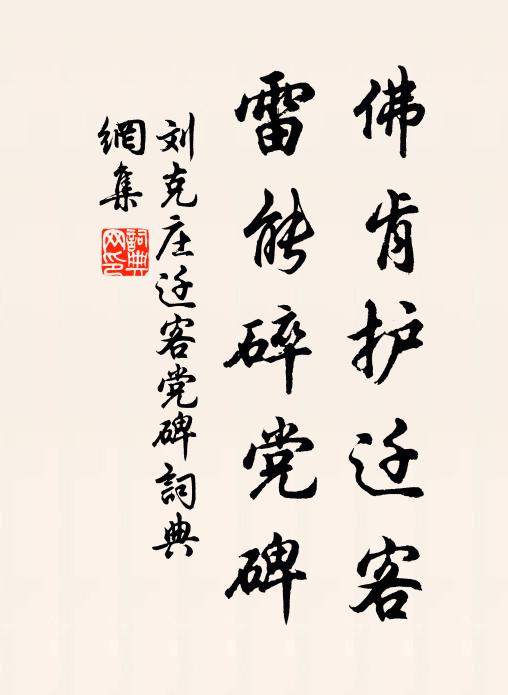 佛肯护迁客
雷能碎党碑
刘克庄迁客党碑詞典
網集
詞典
网印